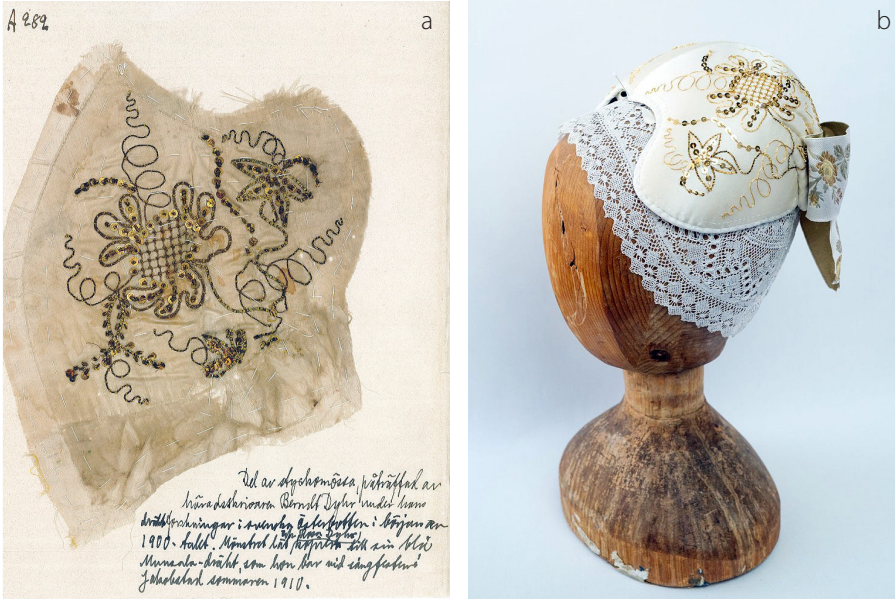 A 282
a
b
Del av styckemössa, påträffad av
häradsskrivaren Berndt Dyhr under hans
dräktforskningar i svenska Österbotten i början av
fru Sara Dyhr
1900-talet. Mönstret lät kopiera till sin blå
Munsala-dräkt, som hon bar vid sångfesten i
Jakobstad sommaren 1910.